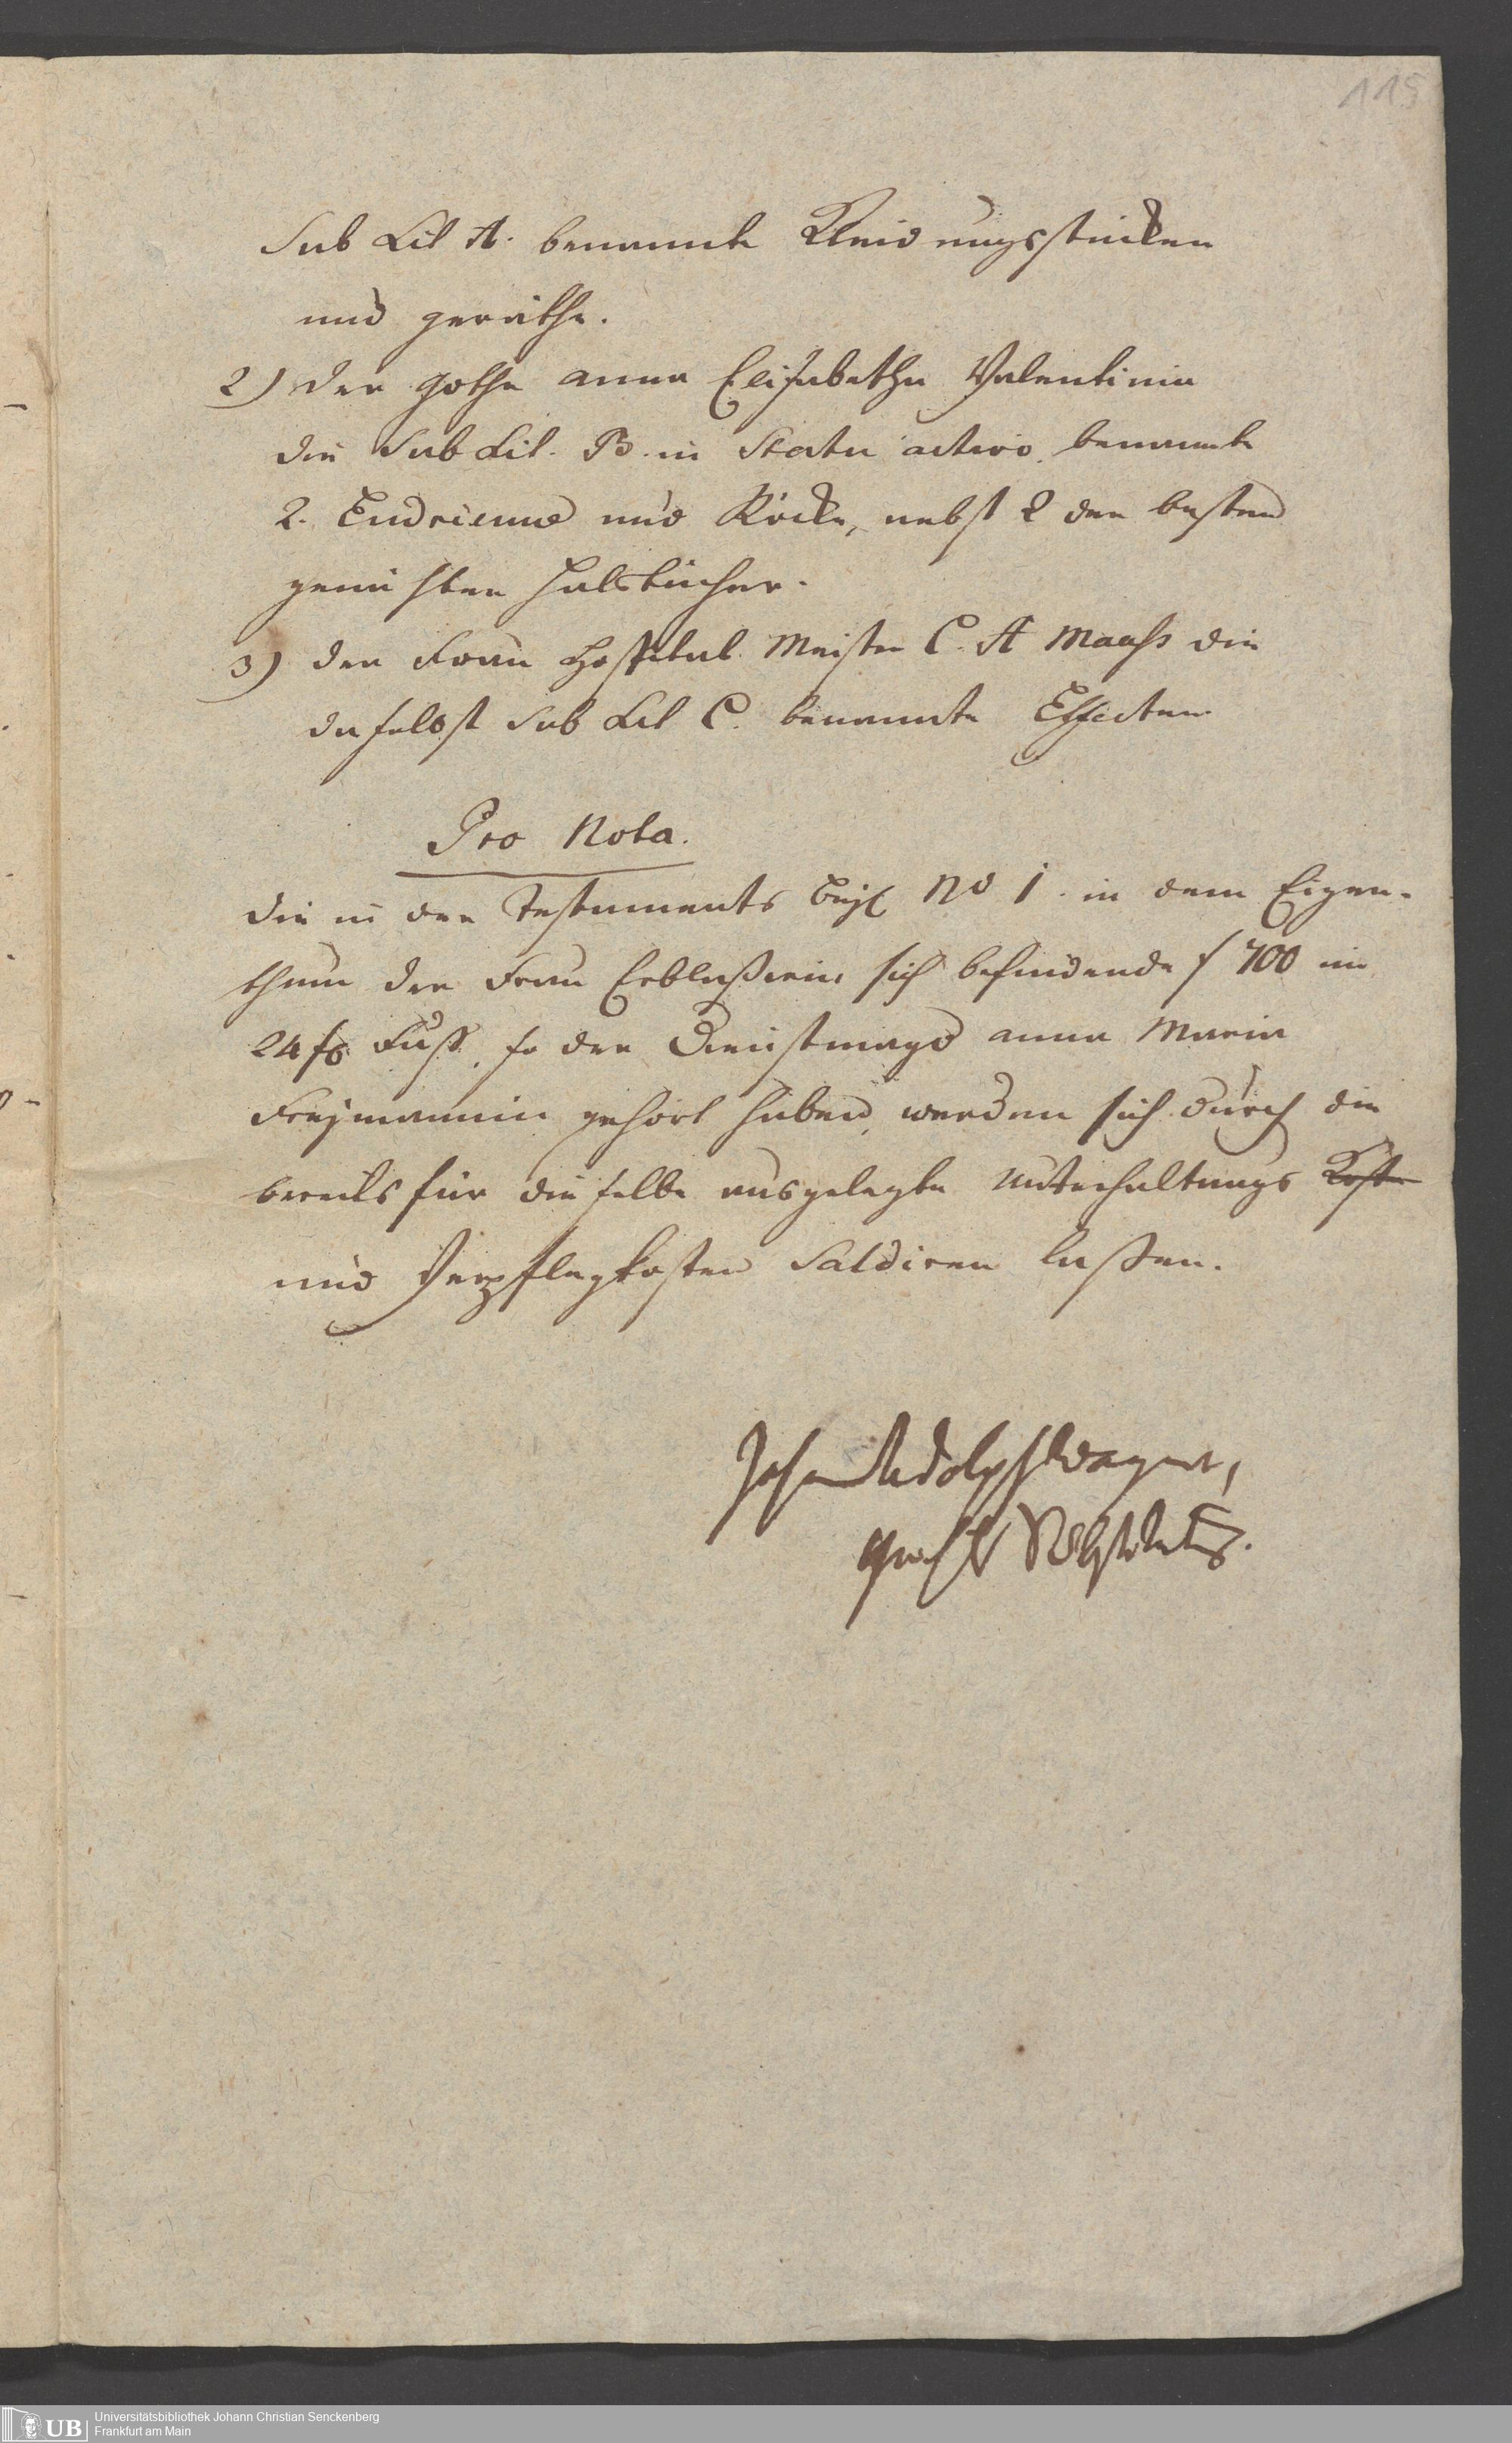 115
Sub Lit A. benannte Kleidungsstücken
und geräthe.
2) der Gothe Anna Elisabetha Valentinin
die Sub Lit. B. in Statu activo benannte
2. Endrienne und Röcke, nebst 2 der besten
genähten Halstücher.
3) der Frau Hospital Meister C. A Maaß die
daselbst Sub Lit C. benannte Effecten
Pro Nota.
die in der Testaments Beyl No 1. in dem Eigen-
thum der Frau Erblaßerin sich befindende f 700 im
24 fl Fuß, so der Dienstmagd Anna Maria
Freymannin gehört haben, werden sich durch die
bereits für dieselbe ausgelegte Unterhaltungs Koste
und Verpflegkosten Saldiren laßen.
Johann Adolph Wagner,
UB Universitätsbibliothek Johann Christian Senckenberg
Frankfurt am Main